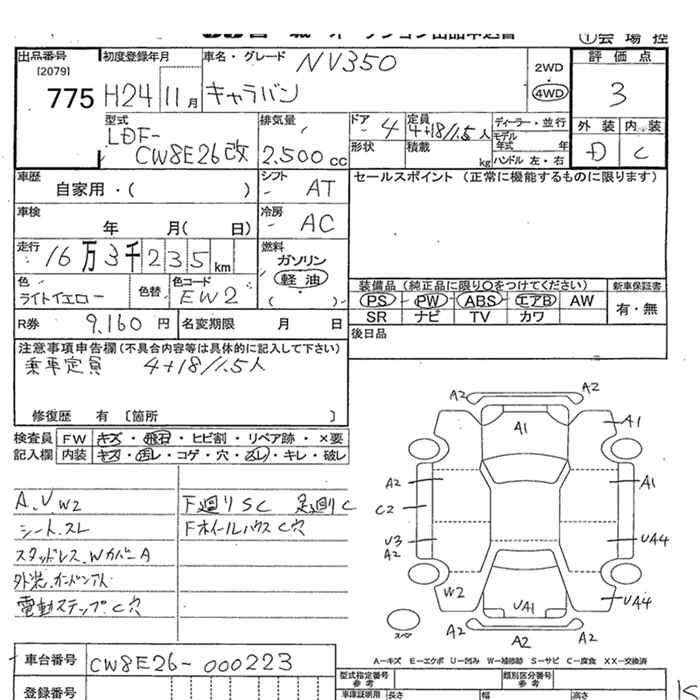 ①会場控
出品番号
[2079]
775
初度登録年月
H24 11月
車名・グレード
NV350
キャラバン
2WD
4WD
評価点
3
外装 内装
D C
型式
LDF-
CW8E26改
排気量
2.500cc
ドア 4
形状
定員
4+18/1.5人
積載
kg
ディーラー・並行
モデル
年式 年
ハンドル 左・右
車歴
自家用・( )
シフト
AT
セールスポイント (正常に機能するものに限ります)
車検
年 月( 日)
冷房
AC
走行
16万3千235km
燃料
ガソリン
軽油
( )
色
ライトイエロー
色替
色コード
EW2
装備品 (純正品に限り○をつけてください)
新車保証書
PS PW ABS エアB AW
SR ナビ TV カワ
有・無
R券 9,160円
名変期限 月 日
後日品
注意事項申告欄(不具合内容等は具体的に記入して下さい)
乗車定員 4+18/1.5人
修復歴 有 〔箇所 〕
検査員 FW キズ・飛石・ヒビ割・リペア跡・×要
記入欄 内装 キズ・汚レ・コゲ・穴・スレ・キレ・破レ
A.V W2
F廻りSC 足廻りC
シート.スレ
Fホイールハウス C穴
スタッドレス.WカバーA
電動ステップC穴
A2 A2
A1 A1
A2 A1
C2
U3
A2
UA4
W2 UA1 UA4
A2 A2 A2
スペア
A－キズ E－エクボ U－凹み W－補修跡 S－サビ C－腐食 XX－交換済
車台番号 CW8E26-000223
登録番号
型式指定番号
参考
類別区分番号
参考
車庫証明用 長さ 幅 高さ